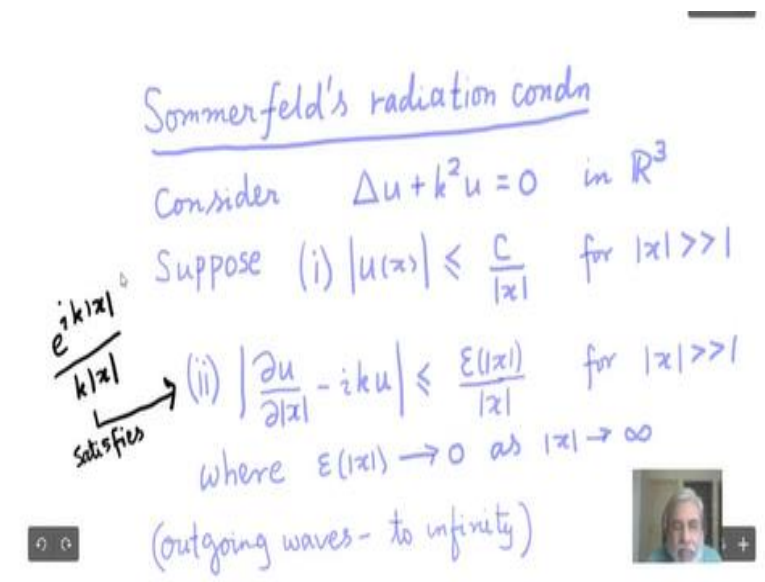 Sommerfeld's radiation condn
Consider Δu + k²u = 0 in ℝ³
Suppose (i) |u(x)| ⩽ C/|x| for |x| >> 1
e^{ik|x|}/k|x|
satisfies
(ii) |∂u/∂|x| - iku| ⩽ ε(|x|)/|x| for |x| >> 1
where ε(|x|) → 0 as |x| → ∞
(outgoing waves - to infinity)